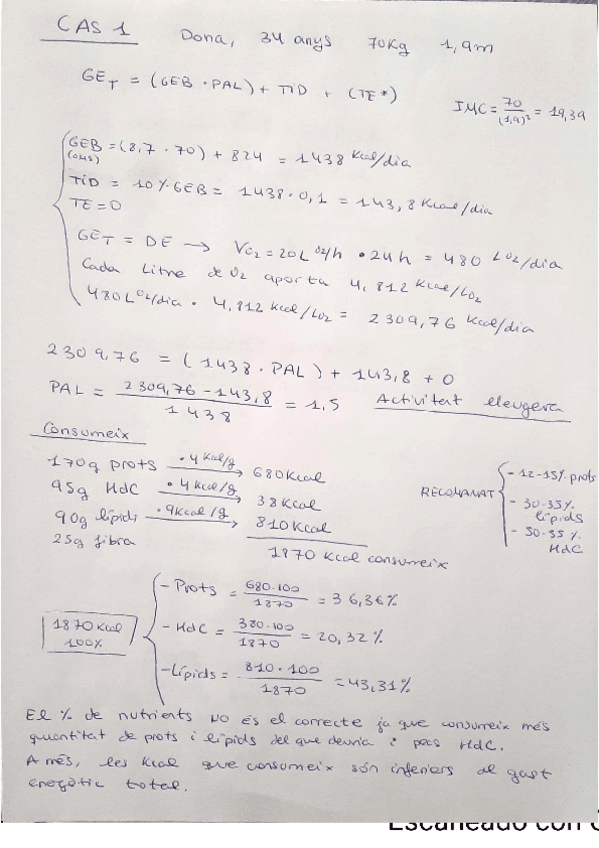 CAS 1 Dona, 34 anys 70Kg 1,9m
GET = (GEB · PAL) + TID + (TE*)
IMC = 70/(1,9)² = 19,39
GEB = (8,7 · 70) + 824 = 1438 Kcal/dia
(OMS)
TID = 10%·GEB = 1438 · 0,1 = 143,8 Kcal/dia
TE = 0
GET = DE → VO2 = 20L O2/h · 24h = 480 L O2/dia
Cada litre de O2 aporta 4,812 Kcal/LO2
480 L O2/dia · 4,812 Kcal/LO2 = 2309,76 Kcal/dia
2309,76 = (1438 · PAL) + 143,8 + 0
PAL = 2309,76 - 143,8 / 1438 = 1,5 Activitat lleugera
Consumeix
170g prots · 4 Kcal/g → 680Kcal
95g HdC · 4 Kcal/g → 38Kcal
90g lípids · 9Kcal/g → 810Kcal
25g fibra
1870 Kcal consumeix
RECOMANAT
- 12-15% prots
- 30-35% lípids
- 50-55% HdC
1870 Kcal
100%
- Prots = 680·100/1870 = 36,36%
- HdC = 380·100/1870 = 20,32%
- Lípids = 810·100/1870 = 43,31%
El % de nutrients NO és el correcte ja que consumeix més
quantitat de prots i lípids del que deuria i pocs HdC.
A més, les Kcal que consumeix són inferiors al gast
energètic total.
Escaneado con